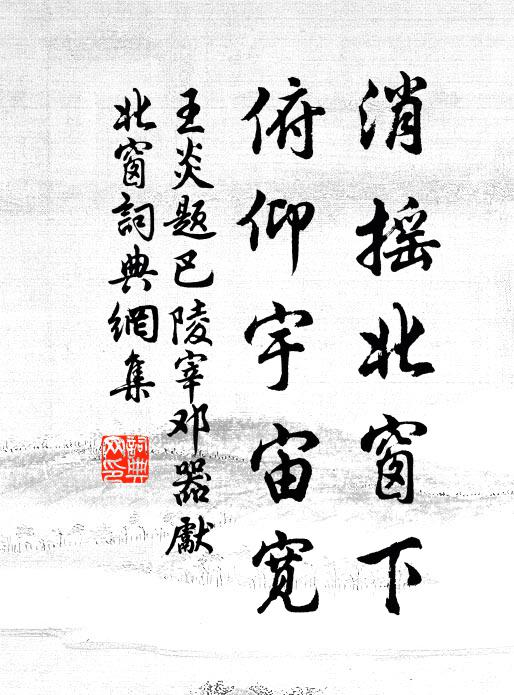 消摇北窗下
俯仰宇宙宽
王炎题巴陵宰邓器獻
北窗詞典網集
詞典网印